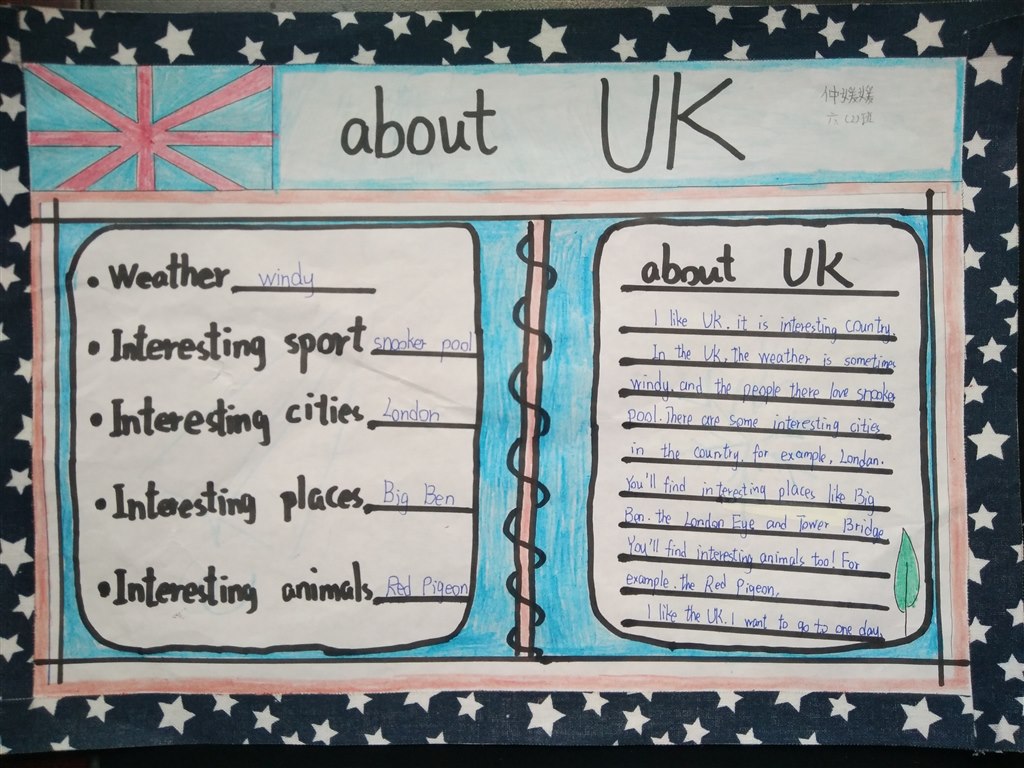 about UK
仲媛媛
六(2)班
• Weather windy
• Interesting sport snooker pool
• Interesting cities London
• Interesting places Big Ben
• Interesting animals Red Pigeon
about UK
I like UK. it is interesting country.
In the UK, the weather is sometimes
windy, and the people there love snooker
pool. There are some interesting cities
in the country, for example, Londan.
You'll find interesting places like Big
Ben. the London Eye and Tower Bridge
You'll find interesting animals too! For
example. the Red Pigeon,
I like the UK. I want to go to one day.